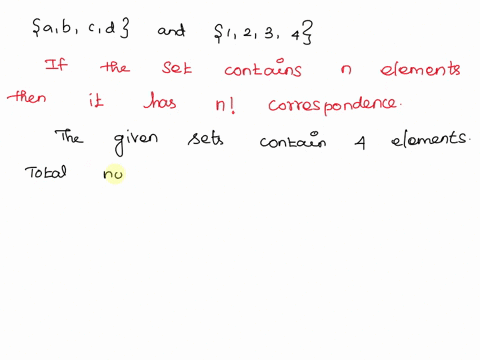 {a, b, c, d} and {1, 2, 3, 4}
If the set contains n elements
then it has n! correspondence.
The given sets contain 4 elements.
Total no